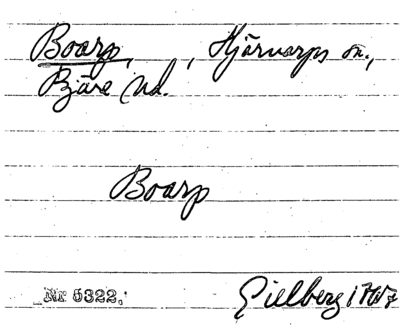 Boarp, , Hjärnarps sn.,
Bjäre hd.
Boarp
Nr 5322.
Gillberg 1767